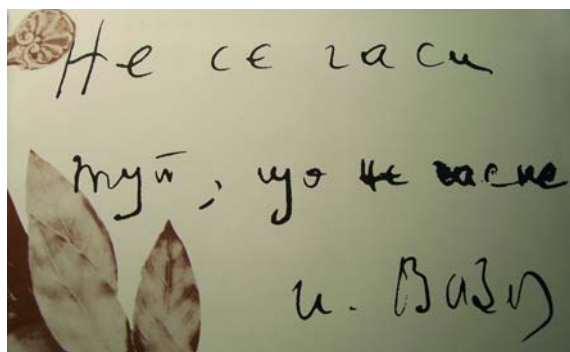 Не се гаси
туй, що не гасне
И. Вазов